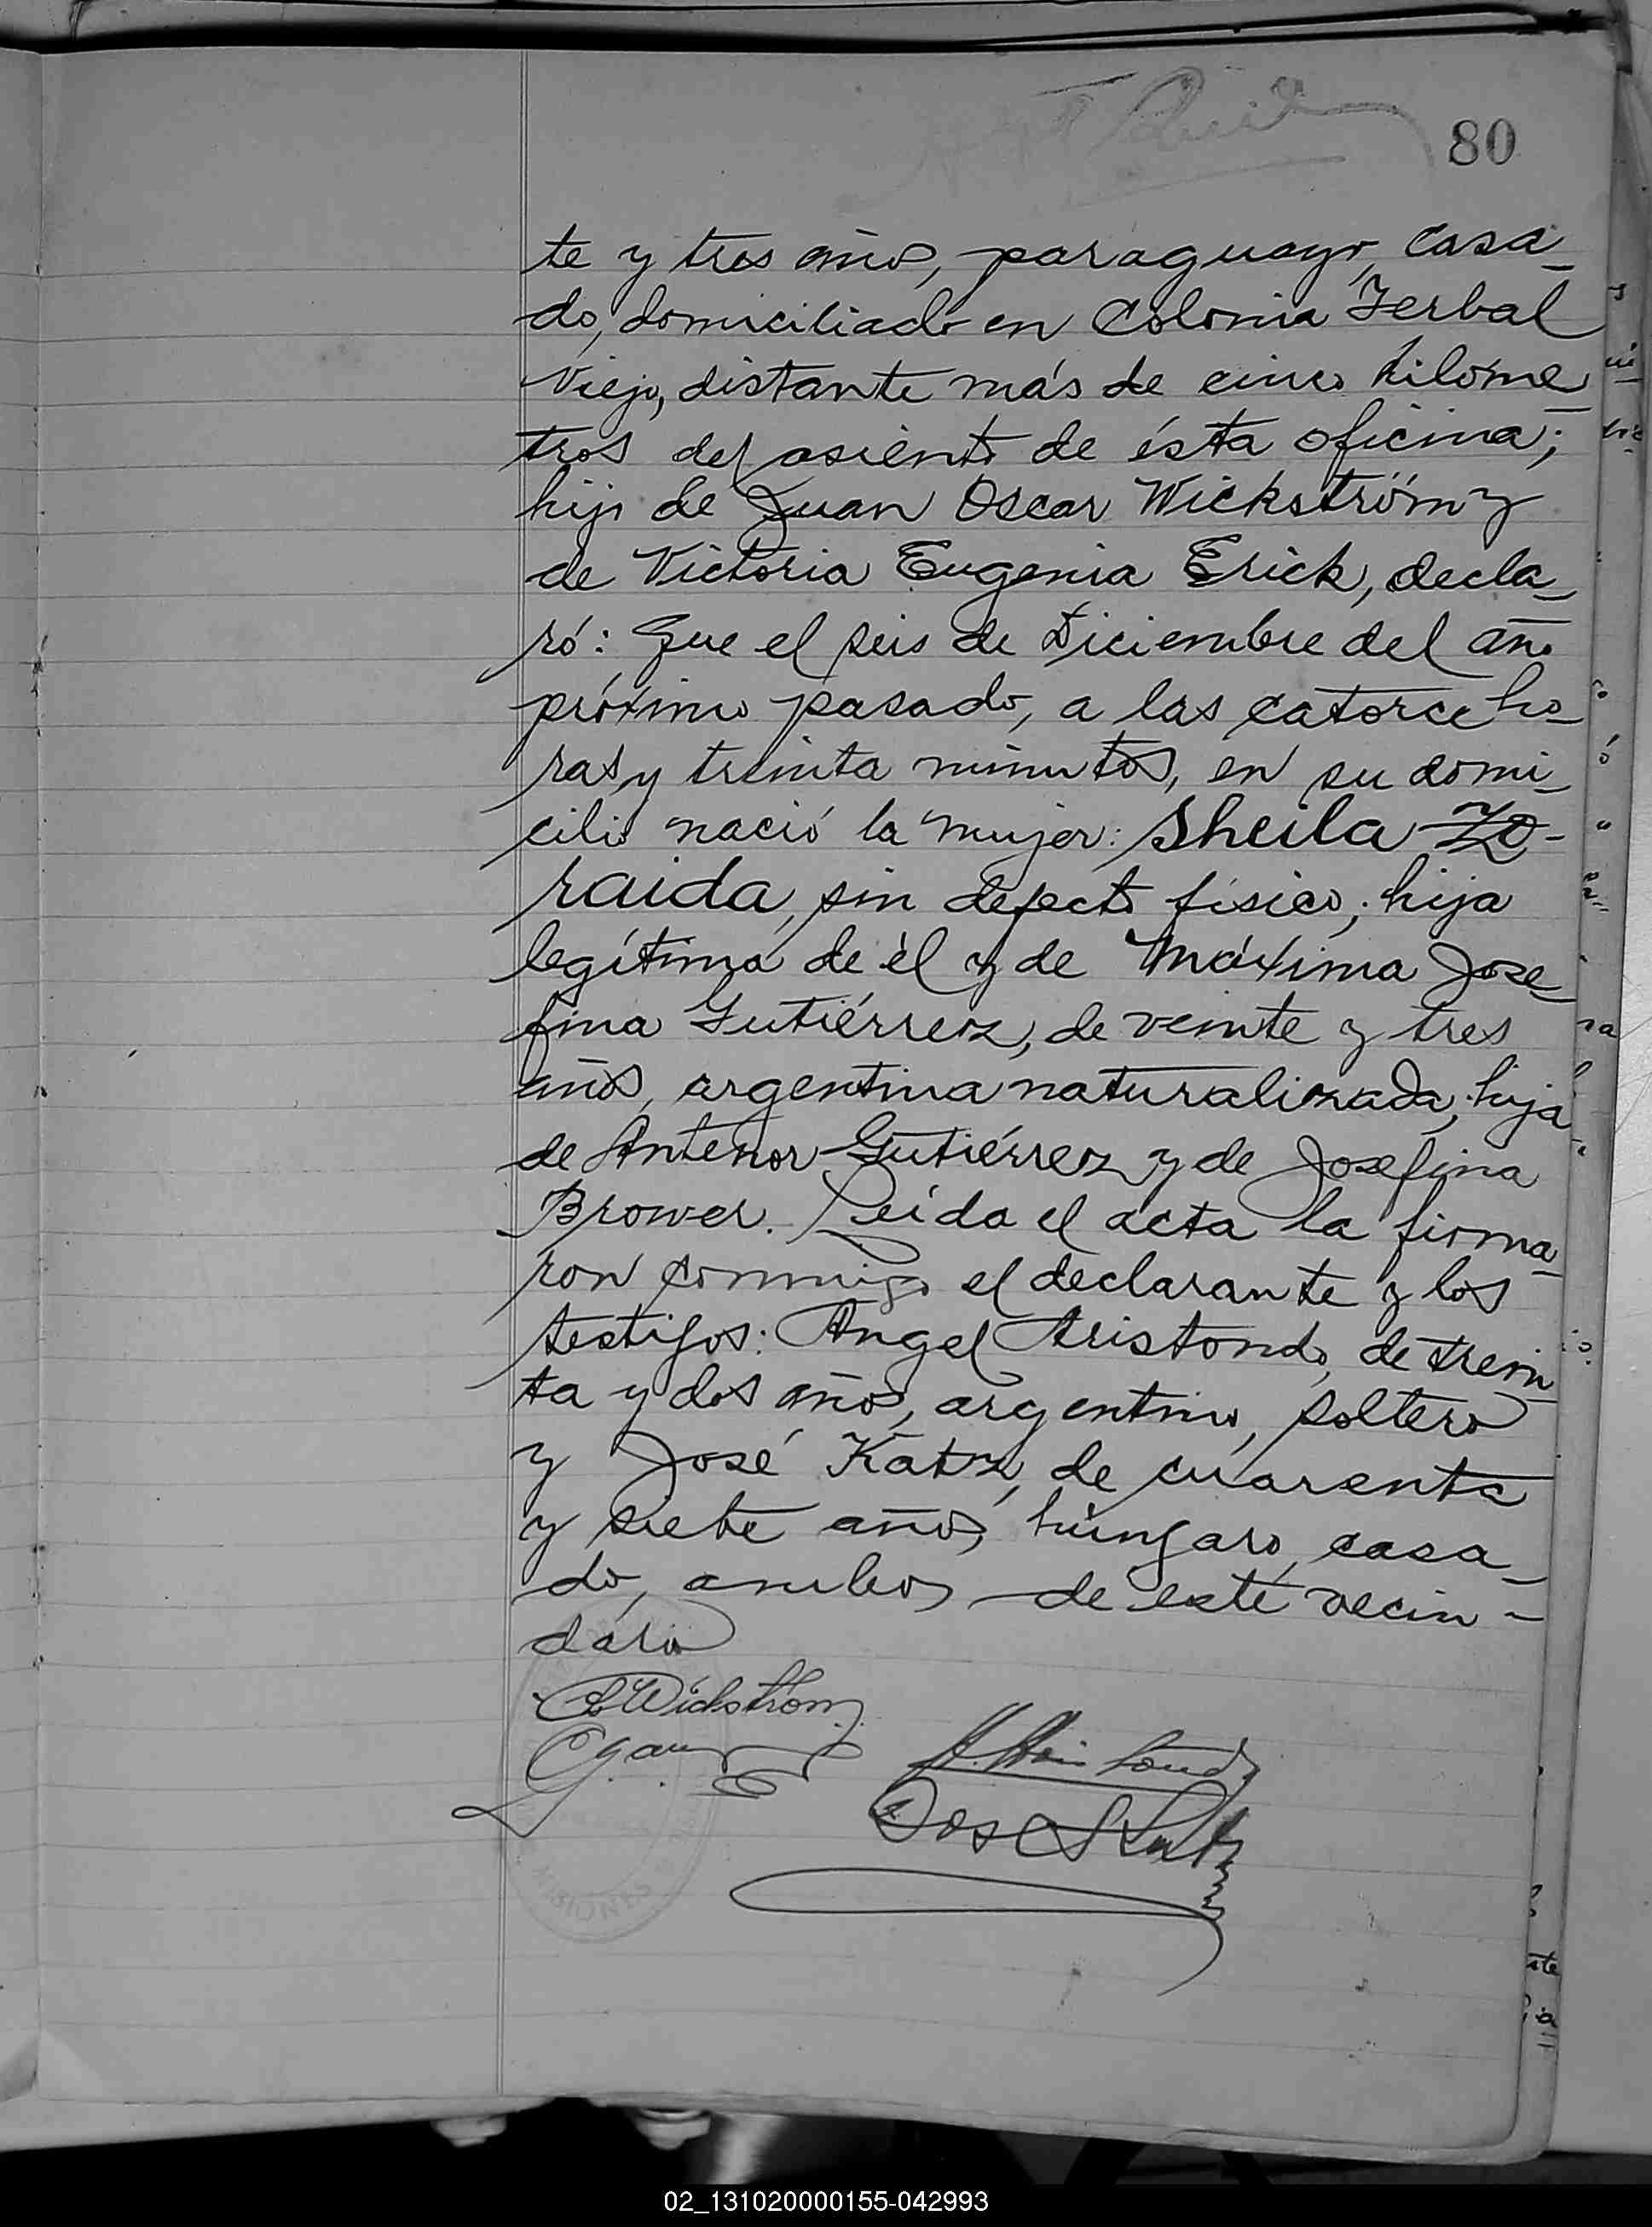 80
te y tres años, paraguayo, casa_
do, domiciliado en Colonia Yerbal
Viejo, distante más de cinco kilóme_
tros del asiento de ésta oficina;
hijo de Juan Oscar Wickström y
de Victoria Eugenia Erick, decla_
ró: Que el seis de Diciembre del año
próximo pasado, a las catorce ho_
ras y treinta minutos, en su domi_
cilio nació la mujer: Sheila Zo-
raida, sin defecto físico; hija
legítima de él y de Máxima Jose_
fina Gutiérrez, de veinte y tres
años, argentina naturalizada; hija
de Antenor Gutiérrez y de Josefina
Brower. Leída el acta la firma_
ron conmigo el declarante y los
testigos: Angel Aristondo, de trein_
ta y dos años, argentino, soltero
y José Katz, de cuarenta
y siete años, húngaro, casa_
do, ambos de este vecin-
dario
Wickström
José Katz
MISIONES
02_131020000155-042993